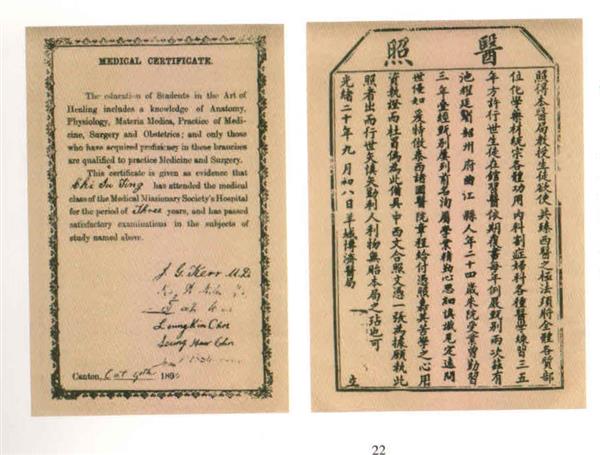 MEDICAL CERTIFICATE.
The education of Students in the Art of
Healing includes a knowledge of Anatomy,
Physiology, Materia Medica, Practice of Medi-
cine, Surgery and Obstetrics; and only those
who have acquired proficiency in these branches
are qualified to practice Medicine and Surgery.
This certificate is given as evidence that
has attended the medical
class of the Medical Missionary Society's Hospital
for the period of Three years, and has passed
satisfactory examinations in the subjects of
study named above.
J. G. Kerr M.D.
Leung Kin Choi
Canton, Oct 189
醫照
照得本醫局教授生徒欲使共臻西醫之極法須將全體各質部
位化學藥材統宗各體功用內科割症婦科各種醫學練習三五
年方許行世生徒在館習醫依期每年例嚴甄別兩次茲有
池耀廷 韶州府曲江縣人年二十四歲來院受業曾勤習
三年叠經甄別屢列前名洵屬學業精勤心思細慎識見定遠聞
世優知爰特倣泰西諸國醫院章程給付憑照嘉其苦學之心用
資執證而杜冒偽為此備具中西文合照文憑一張為據願執此
照者出而行世矢慎矢勤利人利物無貽本局之玷也可
光緒二十年九月初八日羊城博濟醫局
立
22